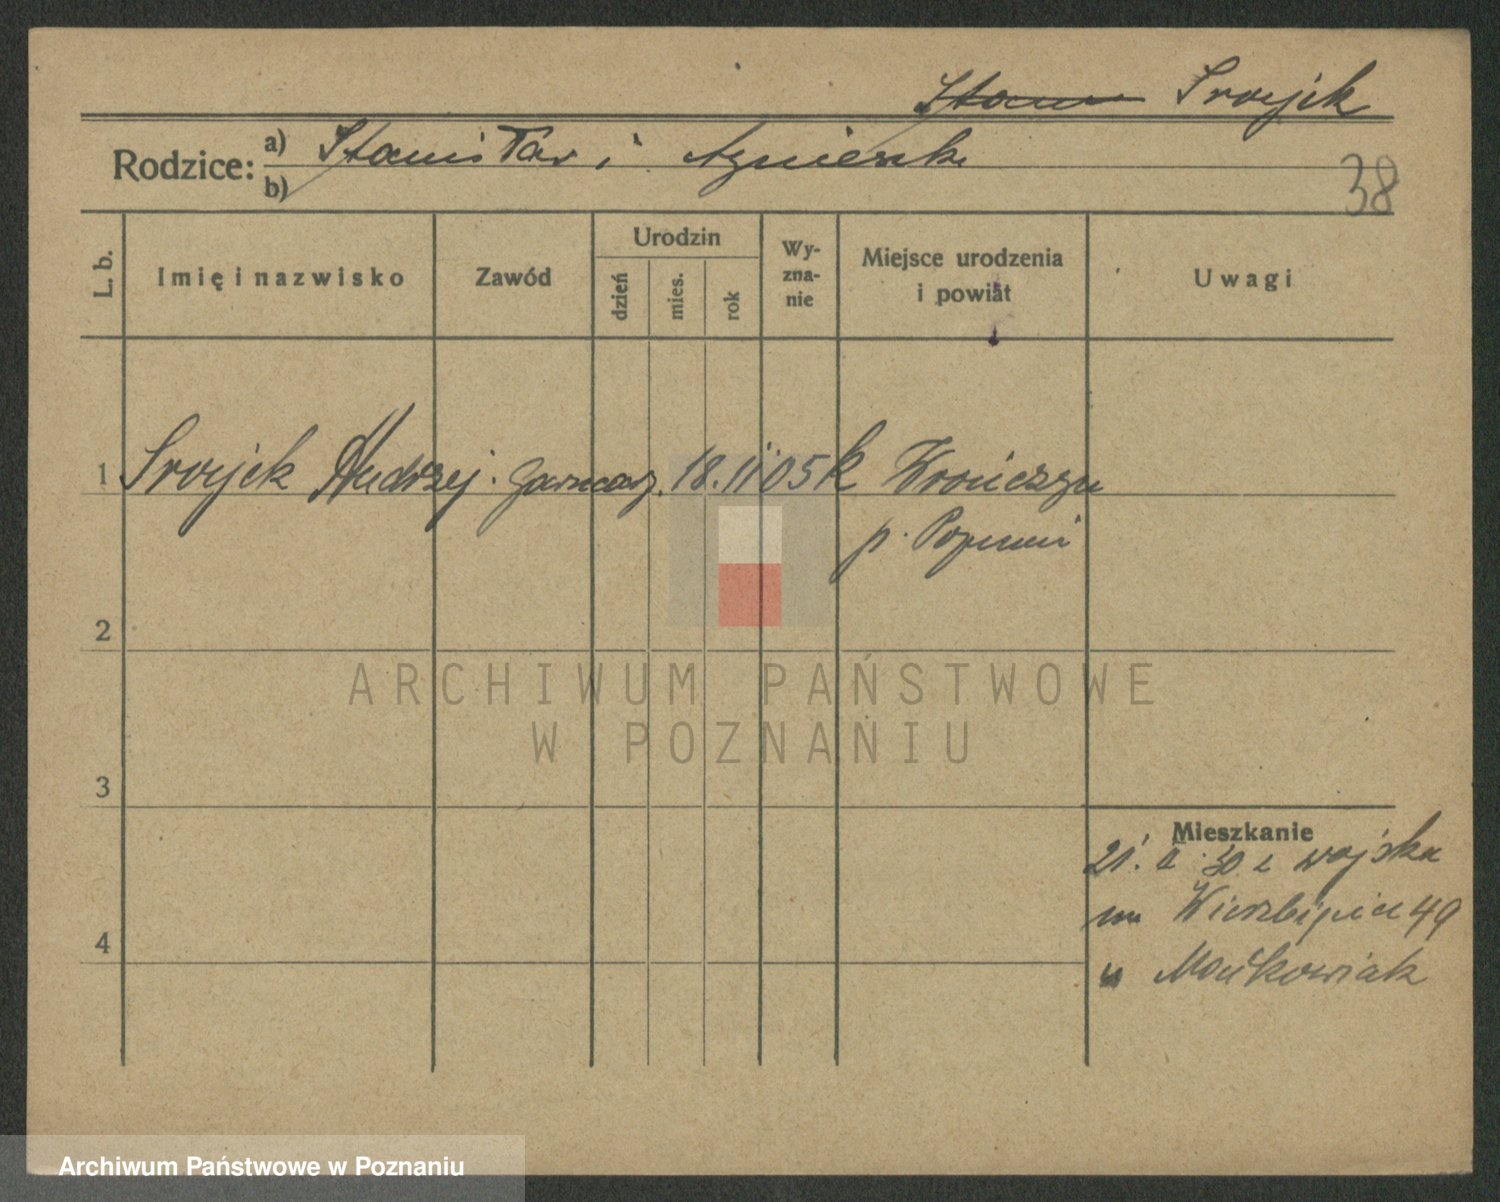 Stanis Srojek
Rodzice: a) Stanisław i Agnieszk
b)
38
L. b. Imię i nazwisko Zawód Urodzin dzień mies. rok Wyznanie Miejsce urodzenia i powiat Uwagi
1 Srojek Andrzej. garncarz. 18. 11 05 k Wrończyn
p. Poznań
2
ARCHIWUM PAŃSTWOWE
W POZNANIU
3
Mieszkanie
21. 2. 30 z wojska
4
Wierzbięcice 49
u Mańkowiak
Archiwum Państwowe w Poznaniu